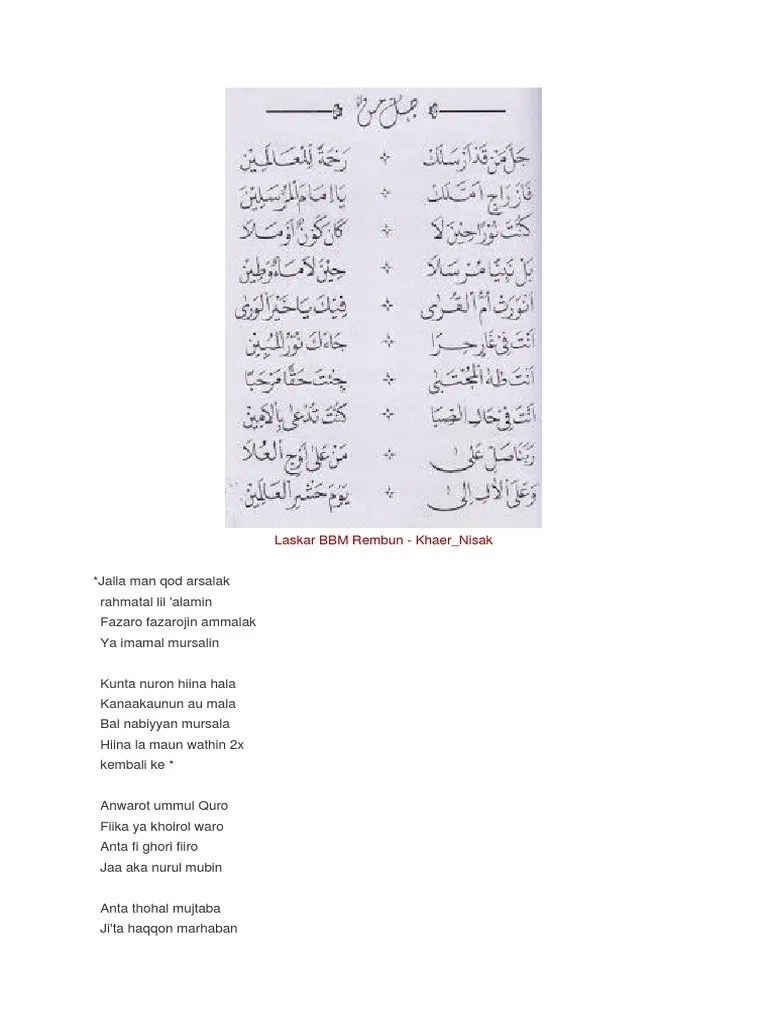 جَلَّ مَنْ قَدْ اَرْسَلَكْ ✧ رَحْمَةً لِلْعَالَمِيْنَ
فَازَ رَاجٍ اَمَّلَكْ ✧ يَا اِمَامَ الْمُرْسَلِيْنَ
كُنْتَ نُوْرًا حِيْنَ لَا ✧ كَانَ كَوْنٌ اَوْ مَلَا
بَلْ نَبِيًّا مُرْسَلَا ✧ حِيْنَ لَا مَاءٌ وَطِيْنْ
اَنْوَرَتْ اُمُّ الْقُرٰى ✧ فِيْكَ يَا خَيْرَ الْوَرٰى
اَنْتَ فِيْ غَارِ حِرَا ✧ جَاءَكَ نُوْرُ الْمُبِيْنْ
اَنْتَ طٰهَ الْمُجْتَبٰى ✧ جِئْتَ حَقًّا مَرْحَبًا
اَنْتَ فِيْ حَالِ الصِّبَا ✧ كُنْتَ تُدْعٰى بِالْاَمِيْنْ
رَبَّنَا صَلِّ عَلٰى ✧ مَنْ عَلٰى اَوْجِ الْعُلَا
وَعَلَى الْاٰلِ اِلٰى ✧ يَوْمَ حَشْرِ الْعَالَمِيْنْ
Laskar BBM Rembun - Khaer_Nisak
*Jalla man qod arsalak
rahmatal lil 'alamin
Fazaro fazarojin ammalak
Ya imamal mursalin
Kunta nuron hiina hala
Kanaakaunun au mala
Bal nabiyyan mursala
Hiina la maun wathin 2x
kembali ke *
Anwarot ummul Quro
Fiika ya khoirol waro
Anta fi ghori fiiro
Jaa aka nurul mubin
Anta thohal mujtaba
Ji'ta haqqon marhaban